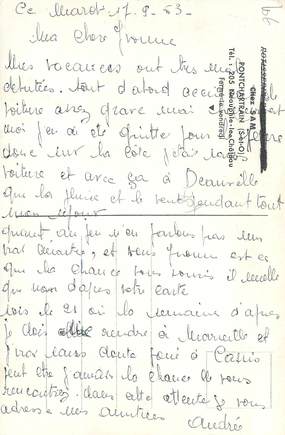 Ce Mardi 17. 9. 63.
Ma Chère Yvonne
Mes vacances ont très mal
débutées. tout d'abord accident de
voiture assez grave mais
moi j'en ai été quitte pour
donc sur la côte j'étais sans
voiture et avec ça à Deauville
que la pluie et le vent pendant tout
mon séjour
quant au jeu n'en parlons pas un
vrai désastre, et vous Yvonne est ce
que la chance vous souris il semble
que non d'après votre carte
vois le 21 ou la semaine d'après
je dois me rendre à Marseille et
j'irai sans doute jouer à Cassis
peut être j'aurais la chance de vous
rencontrer. dans cette attente je vous
adresse mes amitiés
André
Chez SAM
PONTCHARTRAIN (S.-&-O.)
Tél. : 205 Neauphle-le-Château
Fermé le vendredi